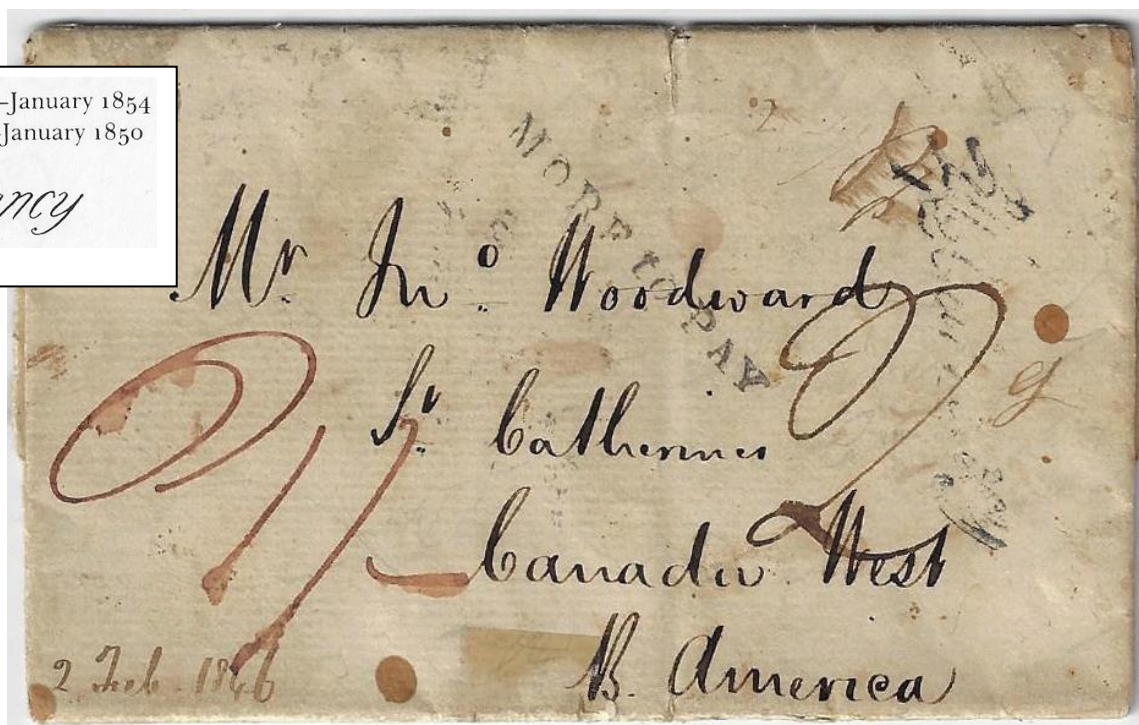 –January 1854
–January 1850
ncy
MORE to PAY
2
Mr. Jno. Woodward
St. Catherines
g
Canada West
B. America
2 Feb. 1846